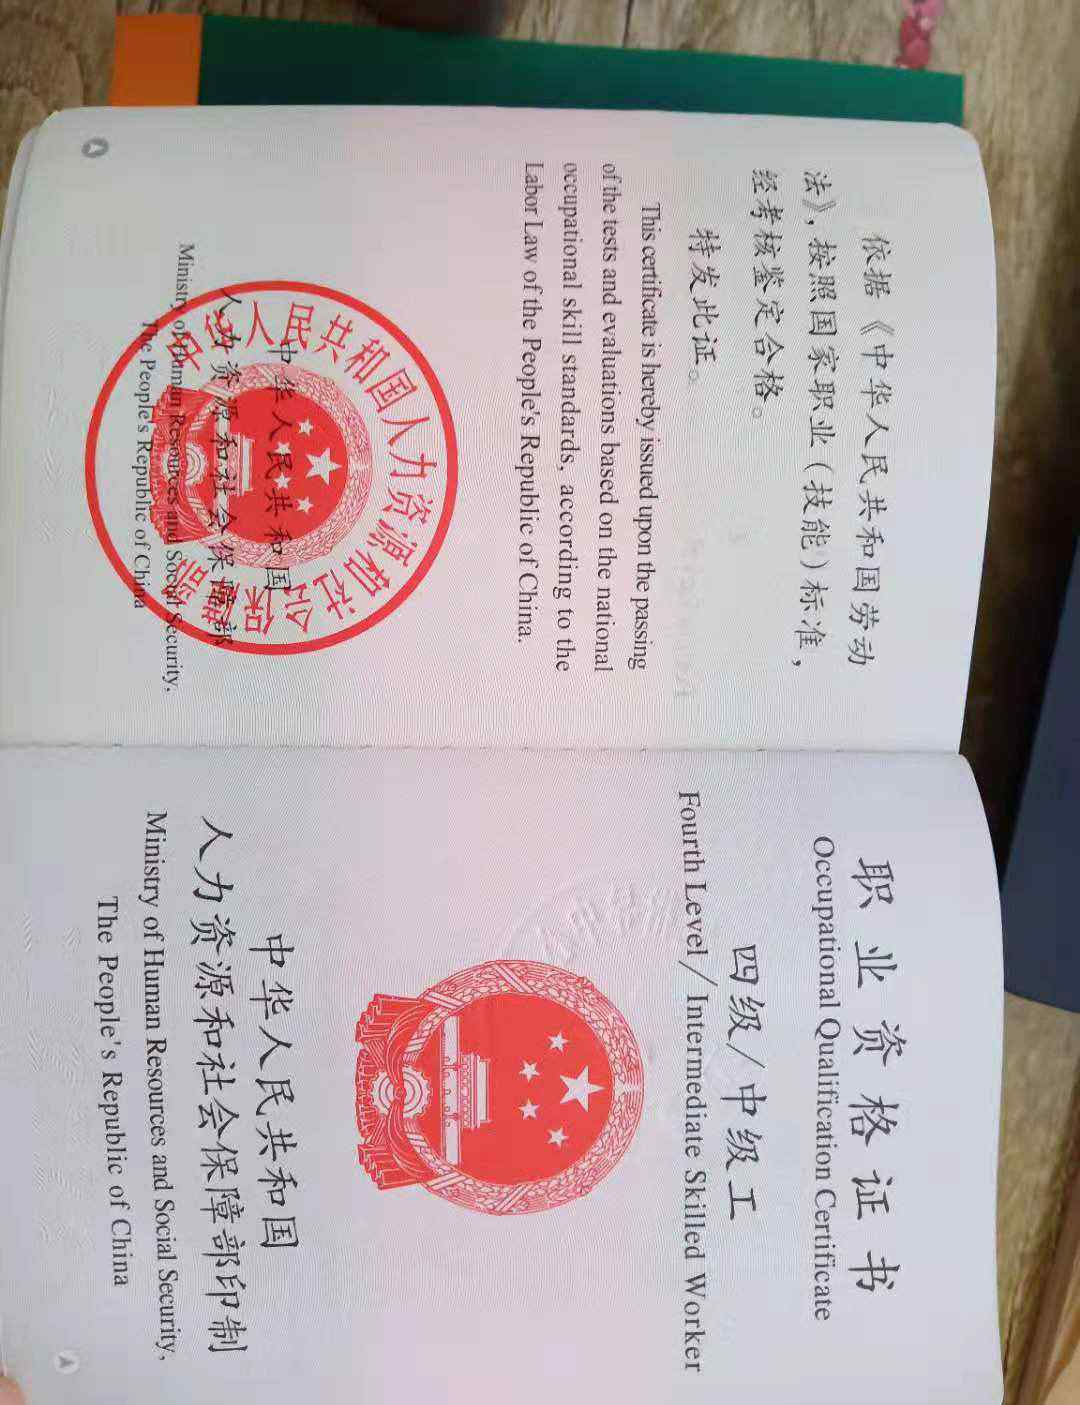 依据《中华人民共和国劳动
法》，按照国家职业（技能）标准，
经考核鉴定合格。
特发此证。
This certificate is hereby issued upon the passing
of the tests and evaluations based on the national
occupational skill standards, according to the
Labor Law of the People's Republic of China.
中华人民共和国人力资源和社会保障部
中华人民共和国
人力资源和社会保障部
Ministry of Human Resources and Social Security,
The People's Republic of China
职业资格证书
Occupational Qualification Certificate
四级/中级工
Fourth Level/Intermediate Skilled Worker
中华人民共和国
人力资源和社会保障部印制
Ministry of Human Resources and Social Security,
The People's Republic of China